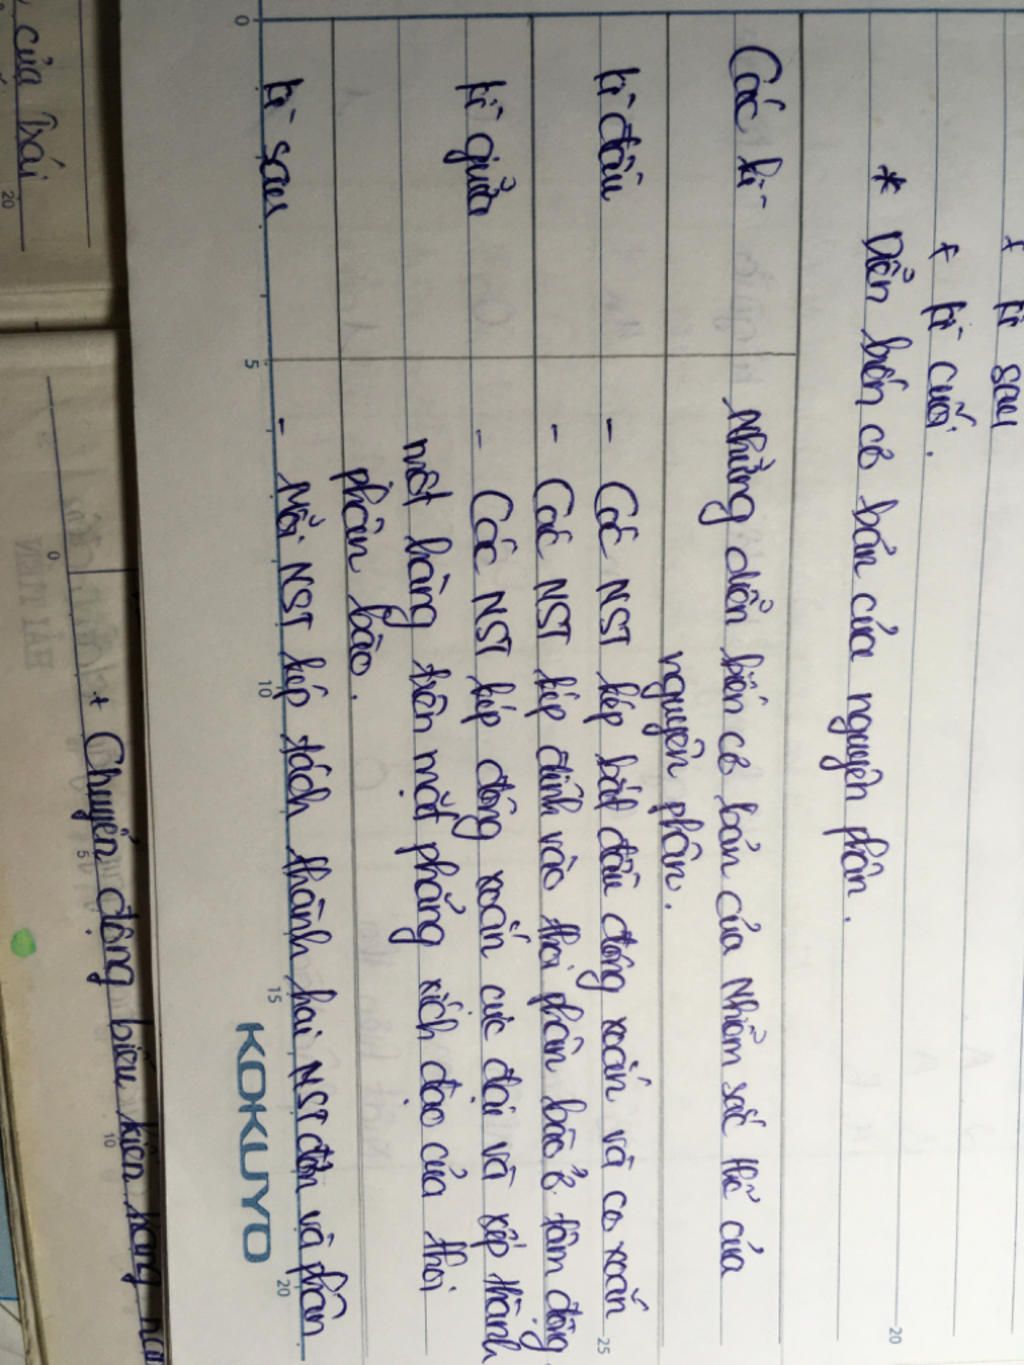 + kì sau
+ kì cuối.
* Diễn biến cơ bản của nguyên phân.
Các kì
Những diễn biến cơ bản của Nhiễm sắc thể của
nguyên phân.
kì đầu
- Các NST kép bắt đầu đóng xoắn và co xoắn
- Các NST kép đính vào thoi phân bào ở tâm động
kì giữa
- Các NST kép đóng xoắn cực đại và xếp thành
một hàng trên mặt phẳng xích đạo của thoi
phân bào.
kì sau
- Mỗi NST kép tách thành hai NST đơn và phân
0
5
10
15
20
25
20
KOKUYO
của bài
20
0
5
10
+ Chuyển động biểu kiến hàng